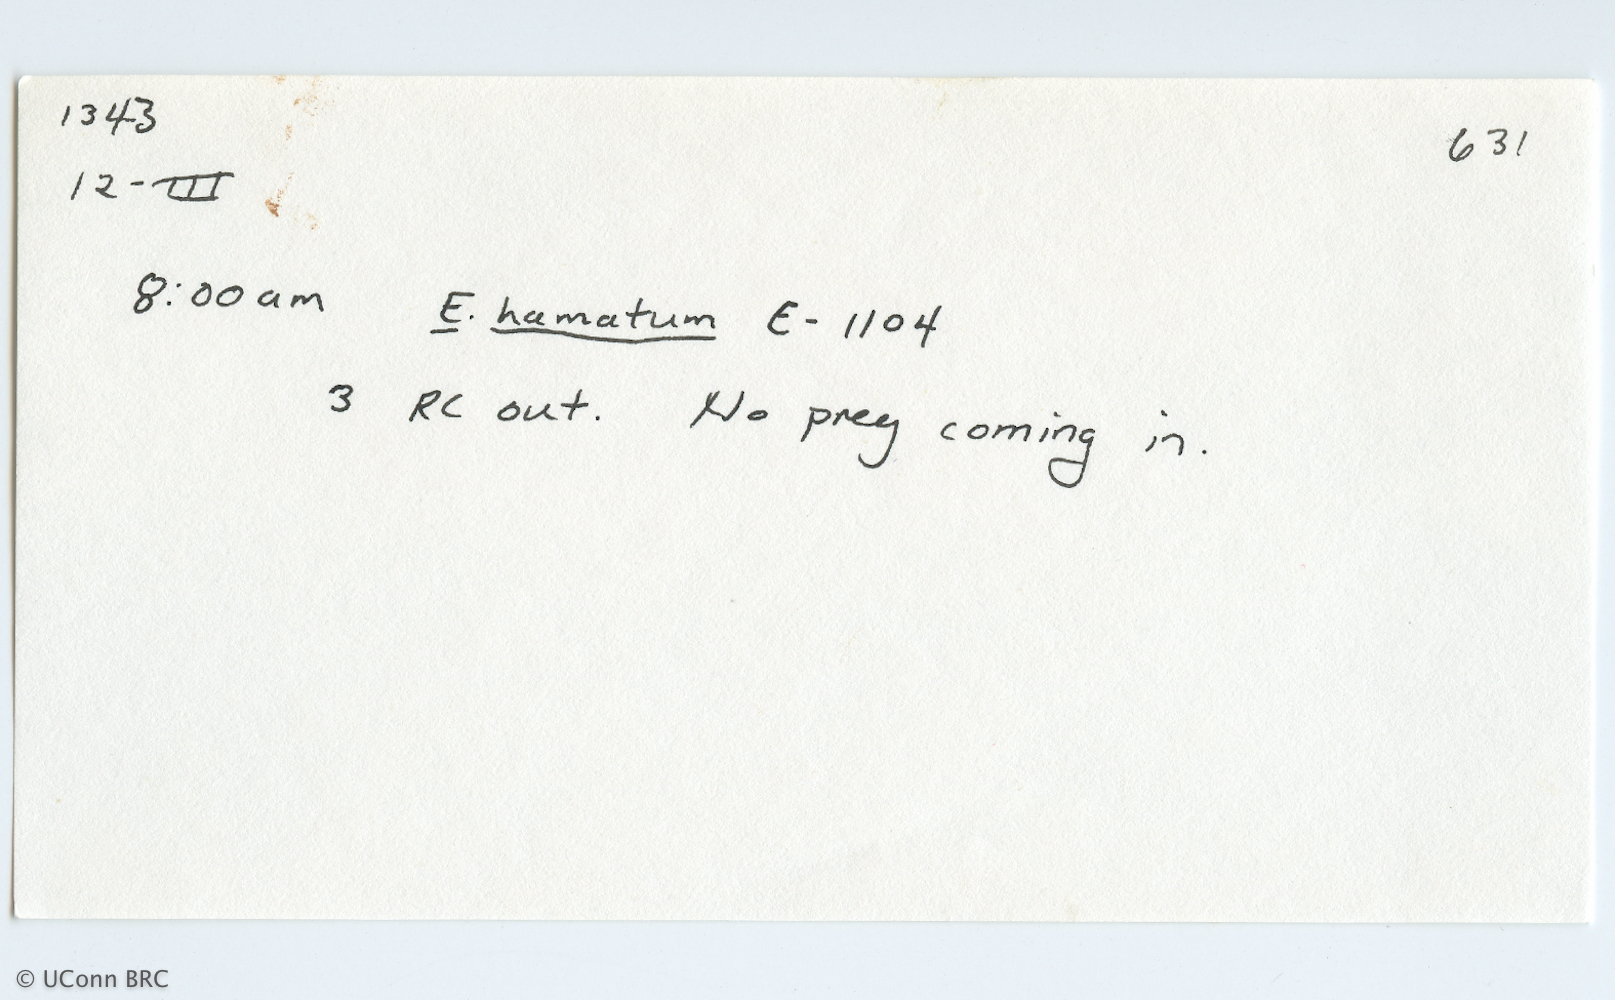 1343
631
12-III
8:00am E. hamatum E-1104
3 RC out. No prey coming in.
© UConn BRC